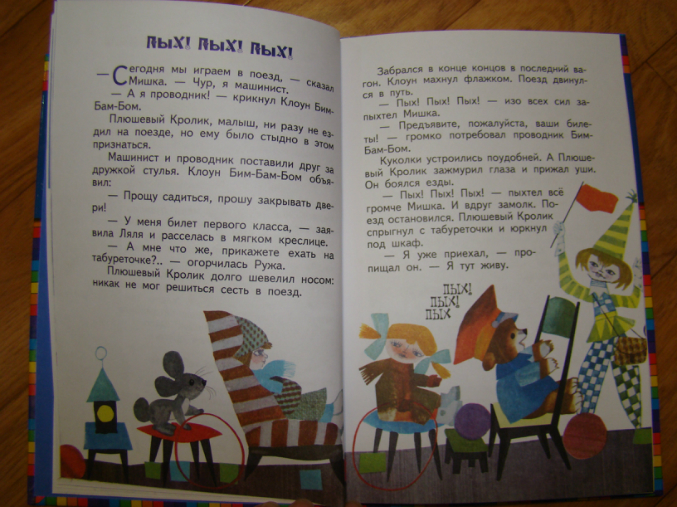 ПЫХ! ПЫХ! ПЫХ!
— Сегодня мы играем в поезд, — сказал
Мишка. — Чур, я машинист.
— А я проводник! — крикнул Клоун Бим-
Бам-Бом.
Плюшевый Кролик, малыш, ни разу не ез-
дил на поезде, но ему было стыдно в этом
признаться.
Машинист и проводник поставили друг за
дружкой стулья. Клоун Бим-Бам-Бом объя-
вил:
— Прошу садиться, прошу закрывать две-
ри!
— У меня билет первого класса, — зая-
вила Ляля и расселась в мягком креслице.
— А мне что же, прикажете ехать на
табуреточке?.. — огорчилась Ружа.
Плюшевый Кролик долго шевелил носом:
никак не мог решиться сесть в поезд.
Забрался в конце концов в последний ва-
гон. Клоун махнул флажком. Поезд двинул-
ся в путь.
— Пых! Пых! Пых! — изо всех сил за-
пыхтел Мишка.
— Предъявите, пожалуйста, ваши биле-
ты! — громко потребовал проводник Бим-
Бам-Бом.
Куколки устроились поудобней. А Плюше-
вый Кролик зажмурил глаза и прижал уши.
Он боялся езды.
— Пых! Пых! Пых! — пыхтел всё
громче Мишка. И вдруг замолк. По-
езд остановился. Плюшевый Кролик
спрыгнул с табуреточки и юркнул
под шкаф.
— Я уже приехал, — про-
пищал он. — Я тут живу.
ПЫХ!
ПЫХ!
ПЫХ